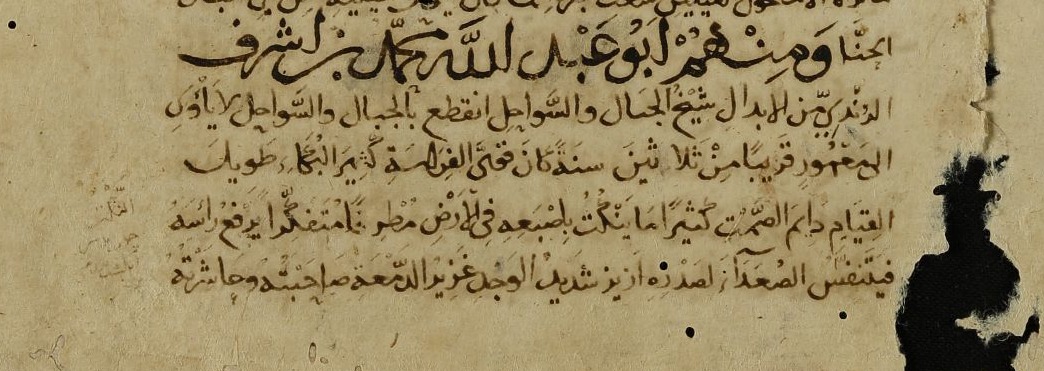 الجنا ومنهم ابو عبد الله محمد بن اشرف
الرندي من الابدال شيخ الجبال والسواحل انقطع بالجبال والسواحل لا يأوي
الى معمور قريبا من ثلاثين سنة كان قوي الفراسة كثير البكاء طويل
القيام دايم الصمت كثيرا ما ينكت باصبعه في الارض مطرقا متفكرا يرفع رأسه
فيتنفس الصعداء لصدره ازيز شديد الوجد غزير الدمعة صاحبته وعاشرته